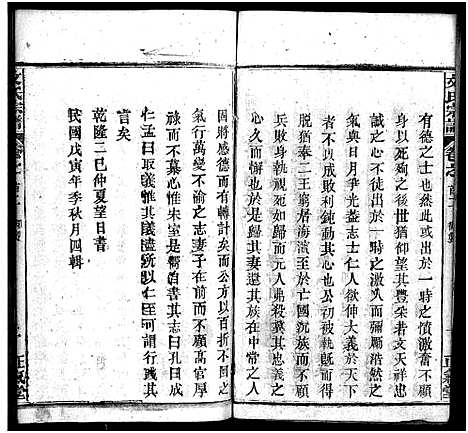 文氏宗譜
卷之首二
有德之士也然此或出於一時之憤激奮不顧
身以死殉之後世猶仰望其豐采若文天祥忠
誠之心不徒出於一時之激久而彌勵浩然之
氣與日月爭光蓋志士仁人欲伸大義於天下
者不以成敗利鈍動其心其被執旣而得
脫猶奉二王崎嶇嶺海演至於宗沉族而不顧
兵敗身執終不為屈歸於元人鼎殺莫其忠莫
其甚於此其妻還人情於此在中常之人
因將感德而有轉計矣而公方以百折不回之
氣行萬不渝之志妻子在前而不顧高官厚
祿而不移惟朱室是嚮自書其志曰孔曰成
仁孟曰取義惟其義盡所以仁至可謂行踐其
言矣
乾隆二巳仲夏望日書
民國戊寅年季秋月四輯
正氣堂